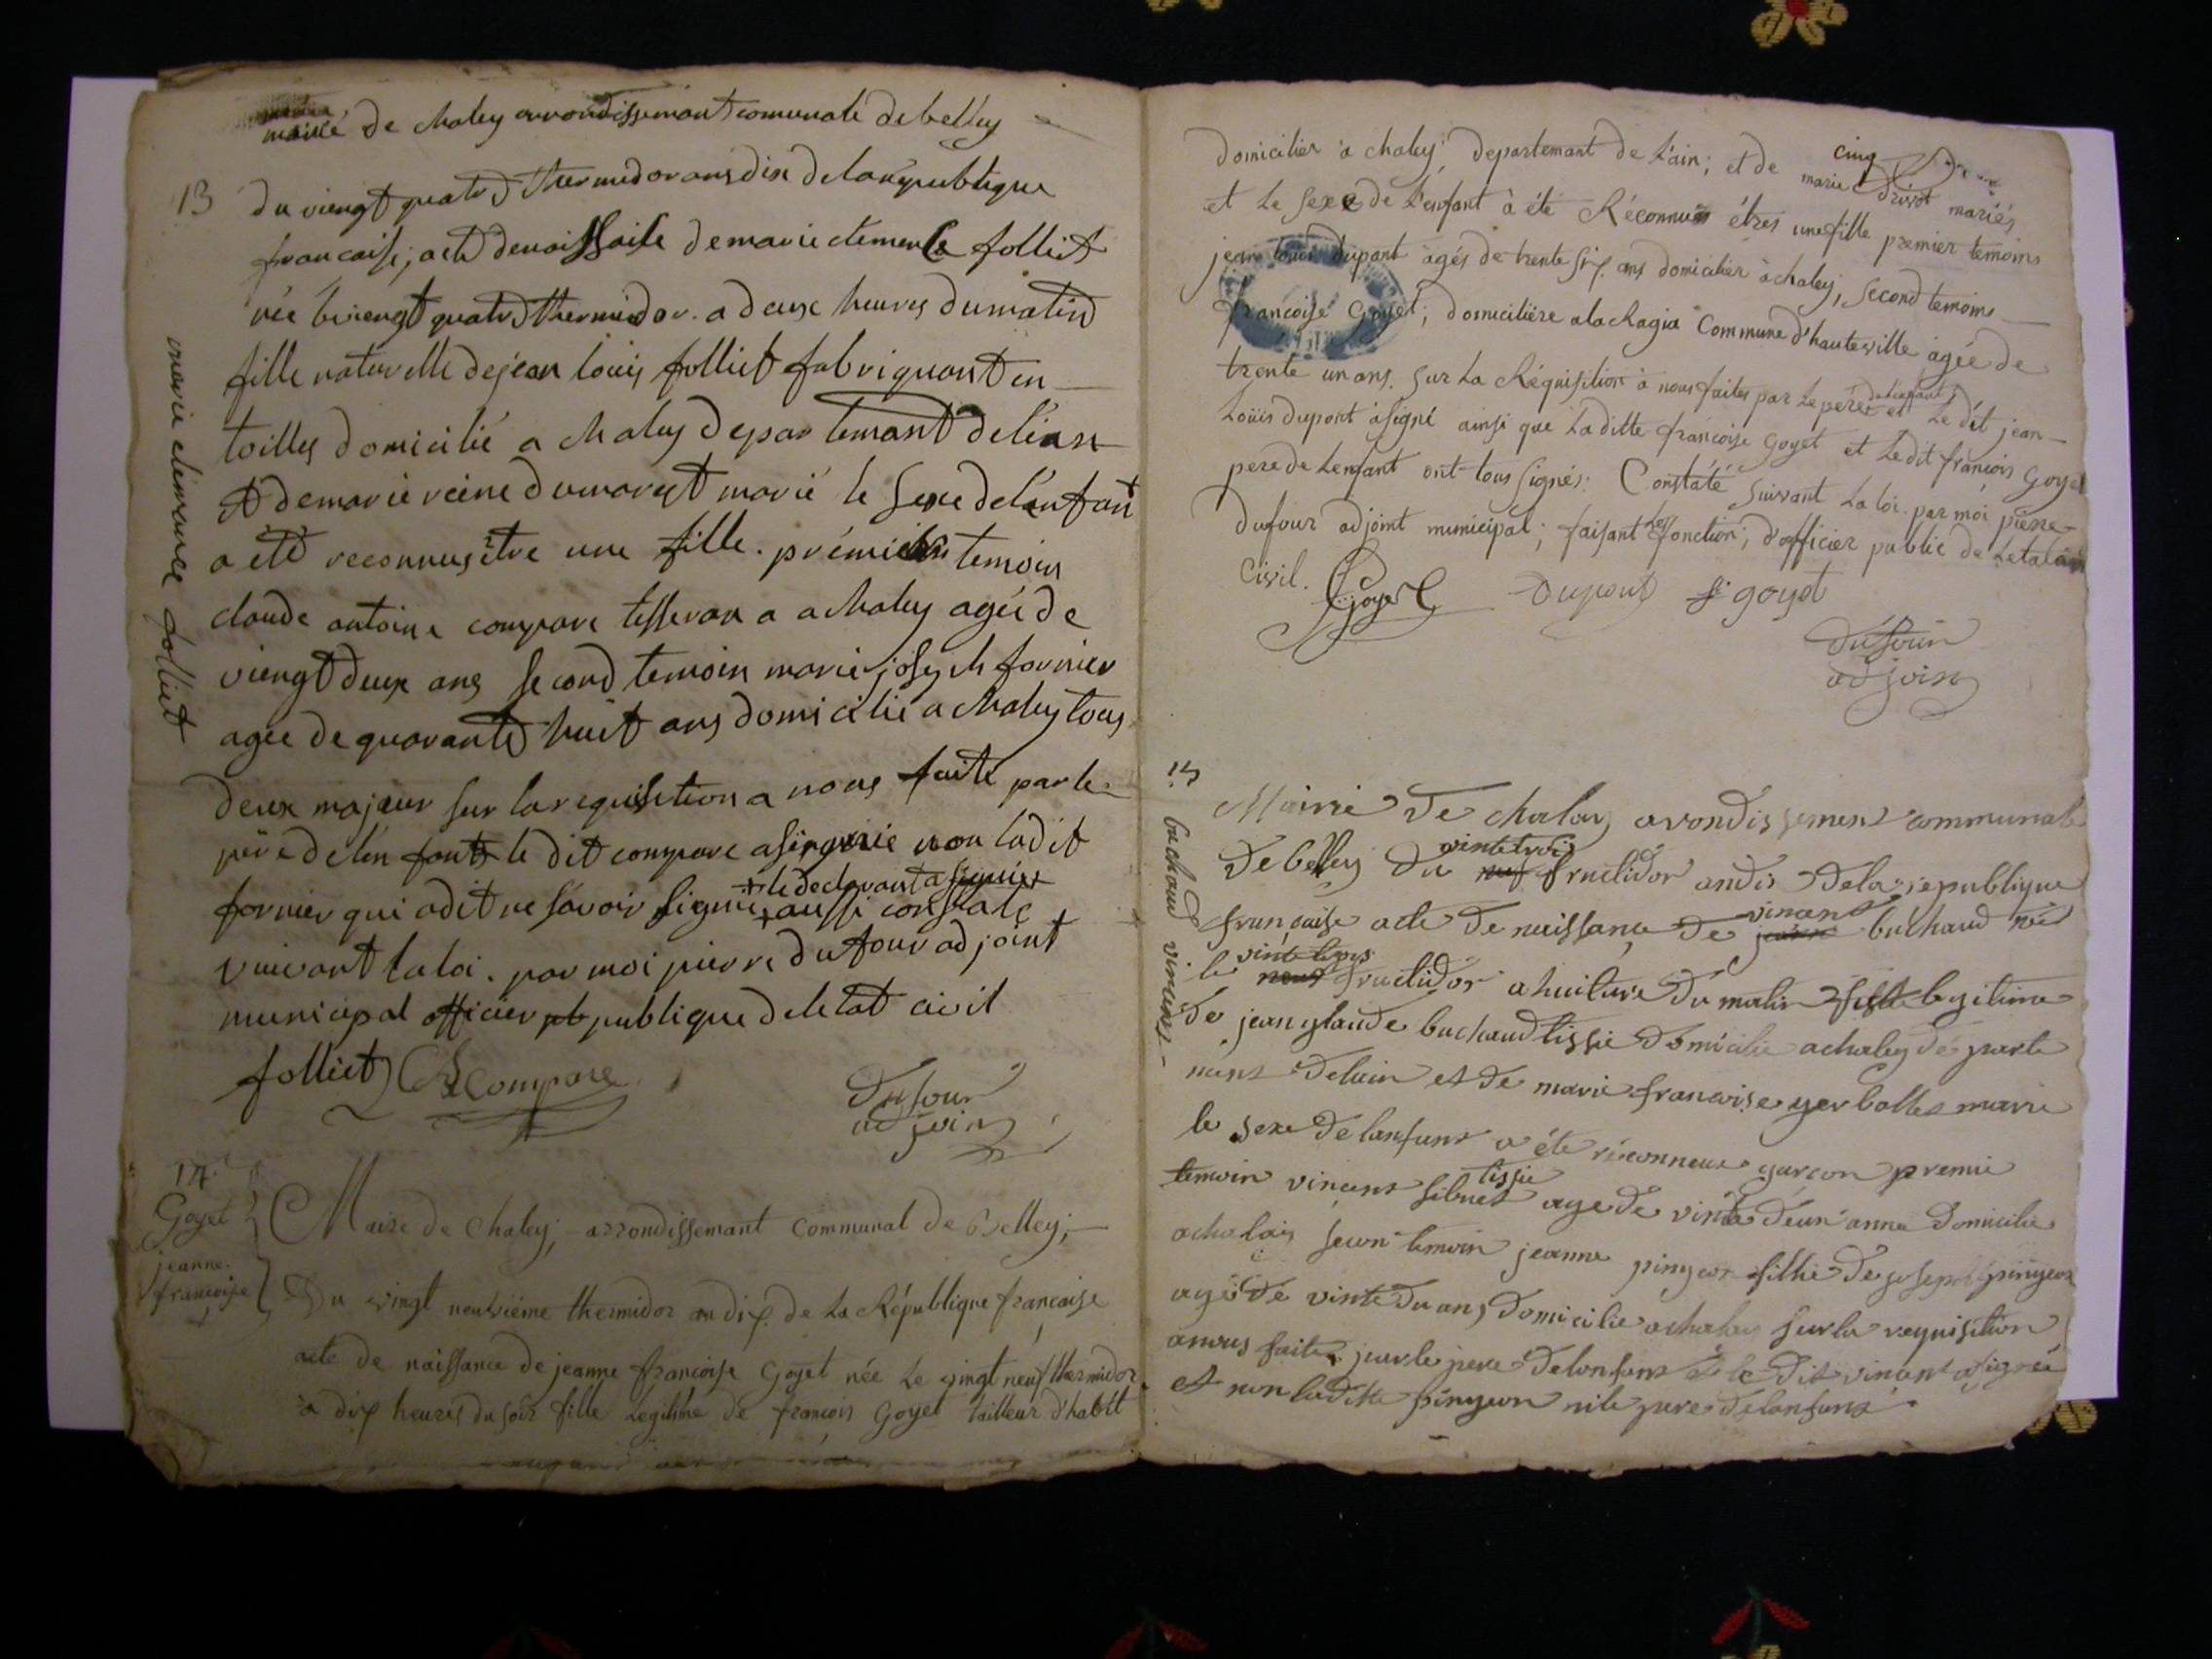 mairié de chaley arrondissemant comunale de belley
13
du viengt quatre thermidor ans dix de la republique
francaise; acte de naissaise de marie clemence folliet
née le viengt quatre thermidor. a deux heures du matin
fille naturelle de jean louis folliet fabriquant en
toilles domicilié a chaley departemant de l'ian
et de marie reine dumarest marié le sexe de l'enfant
a été reconnus être une fille. prémier temoin
claude antoine compare tisseran a achaley agée de
viengt deux ans second temoin marie joseph fornier
agee de quarante huit ans domicilié a chaley tous
deux majeur sur la requisition a nous faite par le
père de l'enfant le dit compare a signié non ladit
+ le declarant a signier
fornier qui a dit ne savoir signié + aussi constate
suivant la loi. par moi pierre dufour adjoint
municipal officier pb publique de letat civil
folliet Compare
Dufour
adjoin
marie clémence folliet
14.
Goyet
jeanne.
françoise
Maire de Chaley; arrondissemant Communal de Belley;
Du vingt neuvième thermidor an dix de La République française
acte de naissance de jeanne françoise Goyet née Le vingt neuf thermidor
à dix heures du soir fille Legitime de françois Goyet tailleur d'habit
domicilier à chaley, departemant de L'ain; et de marie drivot mariés
cinq
et Le sexe de L'enfant à été Réconnus êtres une fille premier temoins
jean Louis dupont agés de trente six ans domicilier à chaley, second temoins
françoise Goyet; domicilière a lachagia Commune d'hauteville agée de
trente un ans. Sur La Réquisition à nous faites par Le pere de l'enfant et Le dit jean
Loüis dupont à signé ainsi que Laditte françoise Goyet et Ledit françois Goyet
pere de Lenfant ont tous signés: Constaté suivant La loi. par moi pierre
Dufour adjoint municipal; faisant Les fonction; d'officier public de Letat
Civil. Goyet Dupont f goyet
Dufour
adjoin
15
buchaud vincans
Mairie De chalay arondissement communale
De belley Du neuf vintetrois fructidor andis De la republique
française acte De naissance De vincent buchaud né
le neuf vinte trois fructidor a huiture Du matin fille legitime
De jean glaude buchaud tissie Domicilie a chaley De parte
mens De lain et De marie francoise yerbollet marie
le sexe De lanfans a éte réconneue garçon premie
temoin vincens sibuet tissie age De vinte Deun anne Domicilie
achalais secon temoin jeanne pingeon fillie De joseph pingeon
agé De vinte Du ans Domicilie achaley sur la requisition
anous faite par le pere De lanfans et le Dit vincant a signée
et non laditte pingeon ni le pere De lanfans